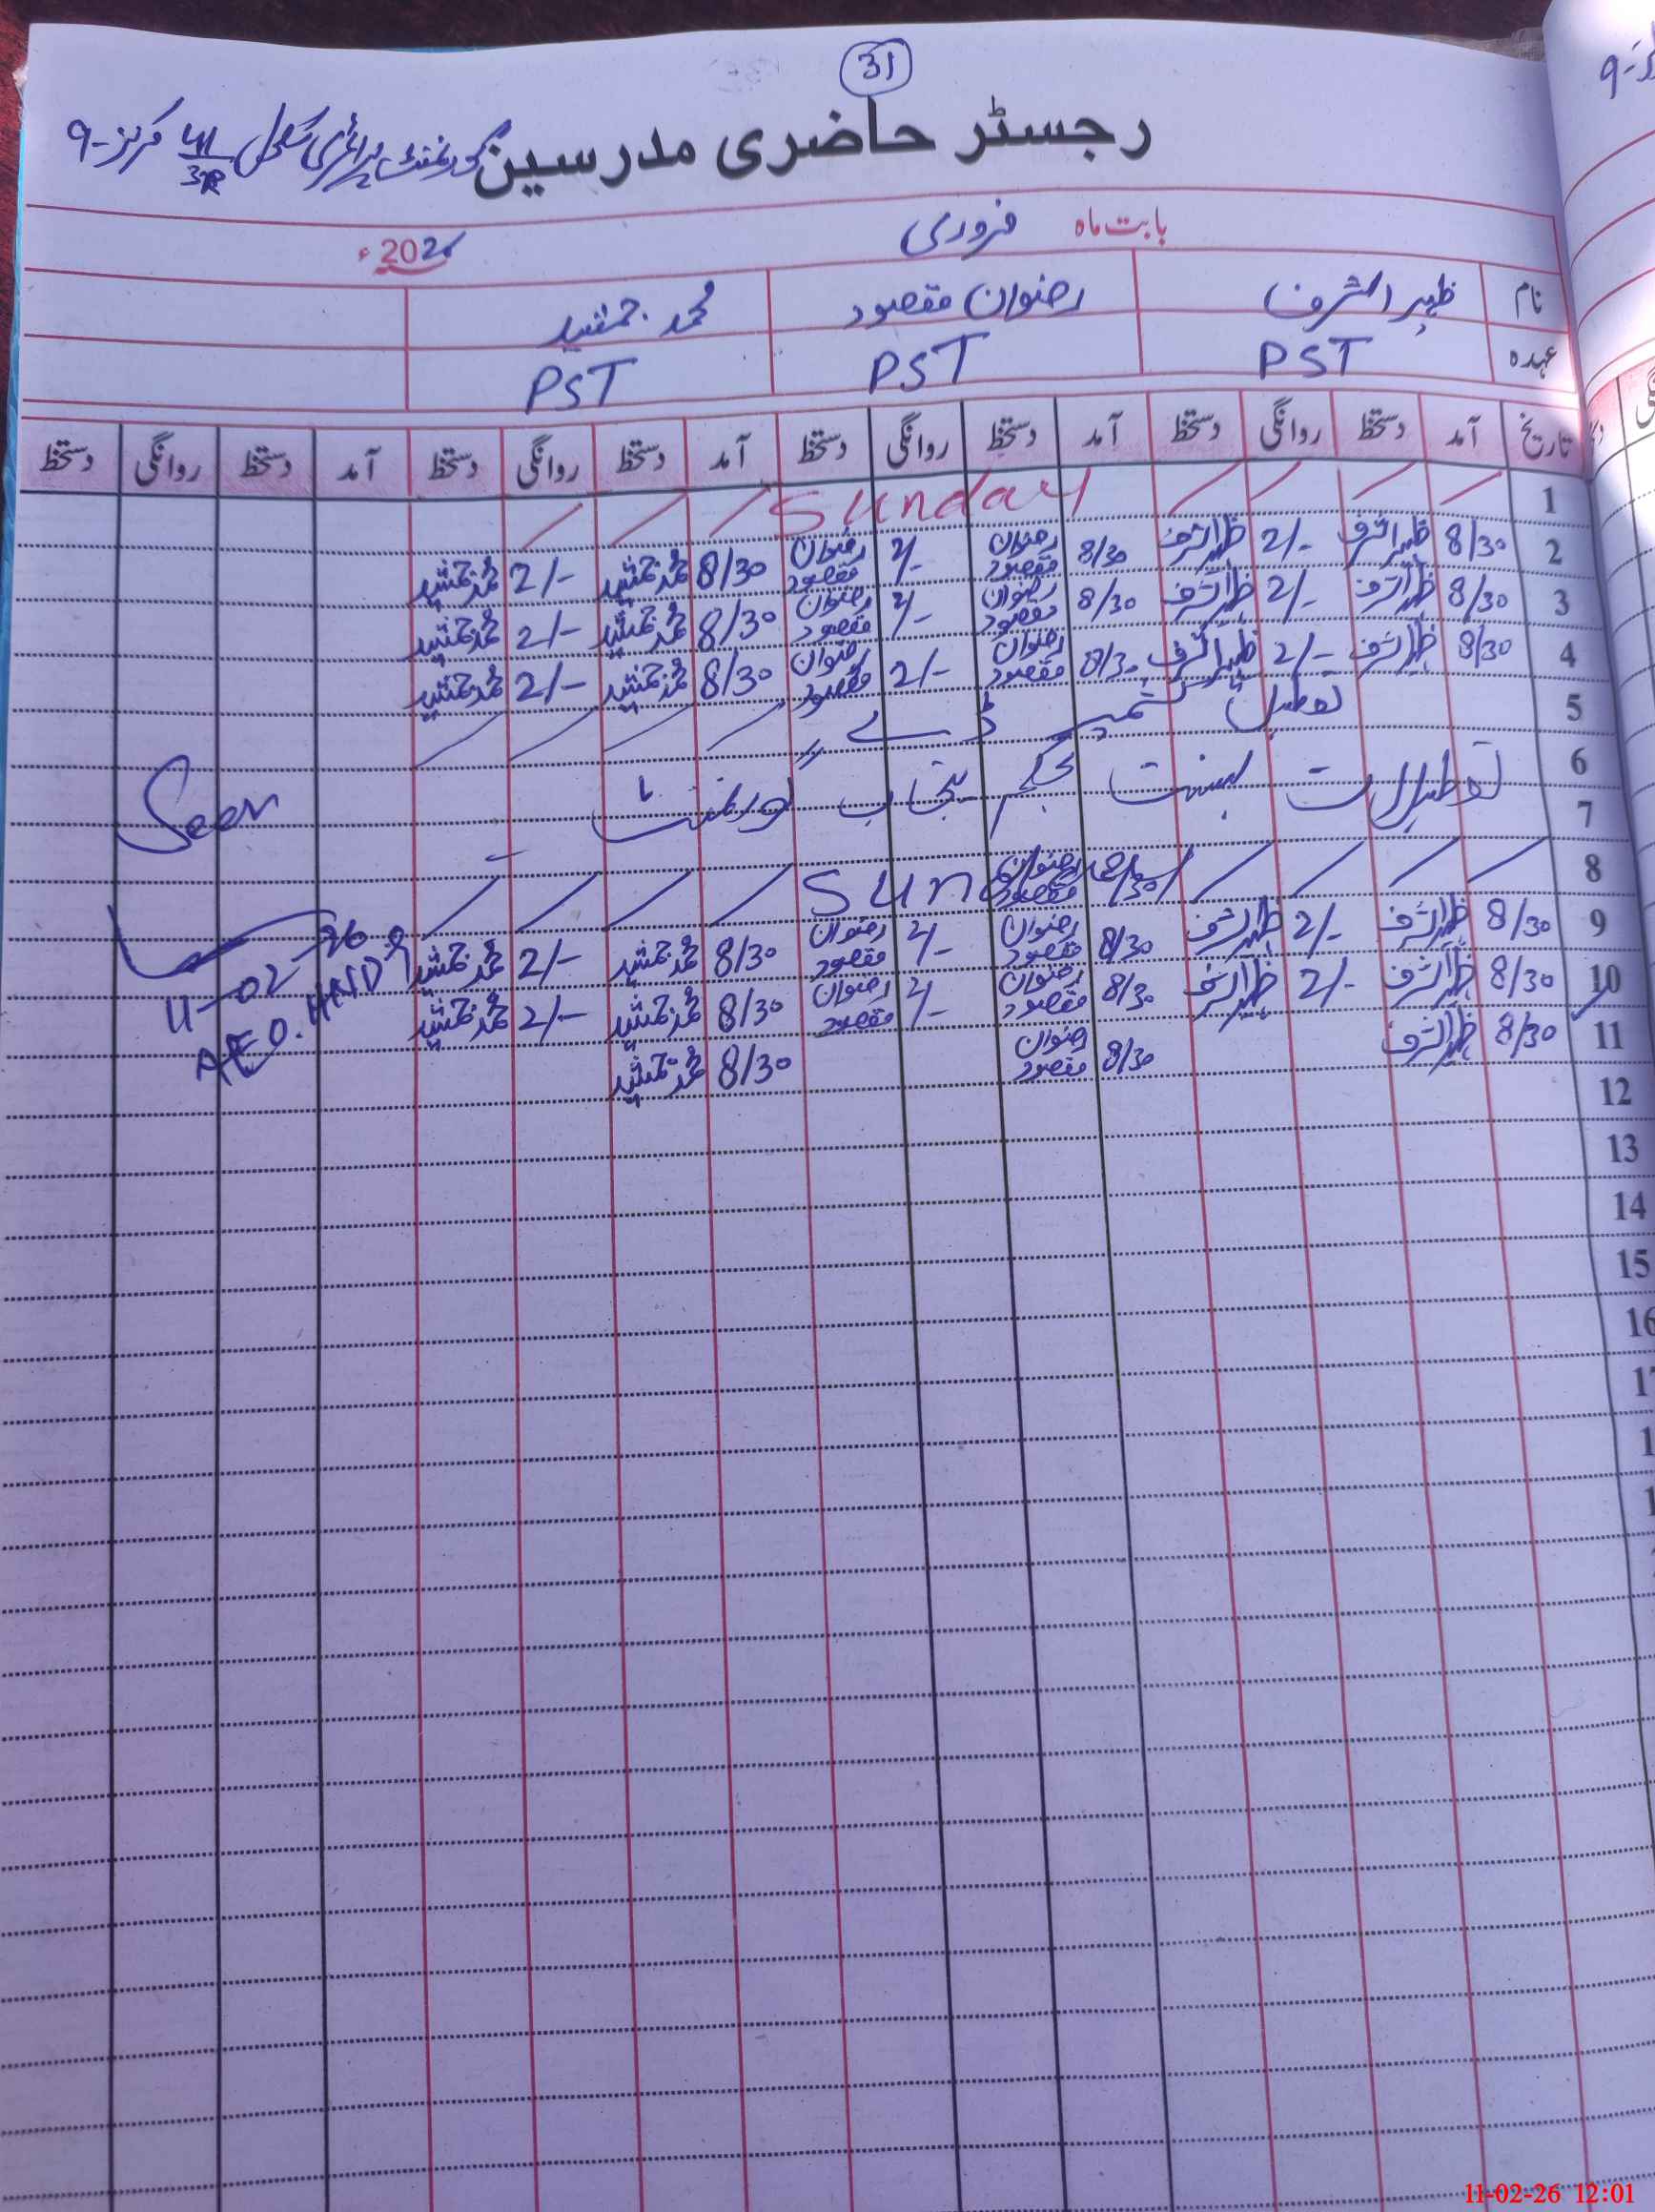 31
رجسٹر حاضری مدرسین گورنمنٹ پرائمری سکول 41/3R مرکز-9
بابت ماہ فروری 2026ء
نام ظہیر اشرف رضوان مقصود محمد جمشید
عہدہ PST PST PST
تاریخ آمد دستخط روانگی دستخط آمد دستخط روانگی دستخط آمد دستخط روانگی دستخط آمد دستخط روانگی دستخط
1 Sunday
2 8/30 ظہیر اشرف 2/- ظہیر اشرف 8/30 رضوان مقصود 2/- رضوان مقصود 8/30 محمد جمشید 2/- محمد جمشید
3 8/30 ظہیر اشرف 2/- ظہیر اشرف 8/30 رضوان مقصود 2/- رضوان مقصود 8/30 محمد جمشید 2/- محمد جمشید
4 8/30 ظہیر اشرف 2/- ظہیر اشرف 8/30 رضوان مقصود 2/- رضوان مقصود 8/30 محمد جمشید 2/- محمد جمشید
5 تعطیل کشمیر ڈے
6 تعطیلات بسنت بحکم پنجاب گورنمنٹ
7
Seen
8 Sunday
9 8/30 ظہیر اشرف 2/- ظہیر اشرف 8/30 رضوان مقصود 2/- رضوان مقصود 8/30 محمد جمشید 2/- محمد جمشید
10 8/30 ظہیر اشرف 2/- ظہیر اشرف 8/30 رضوان مقصود 2/- رضوان مقصود 8/30 محمد جمشید 2/- محمد جمشید
11 8/30 ظہیر اشرف 8/30 رضوان مقصود 8/30 محمد جمشید
11-02-26
AEO. HND 9
12
13
14
15
16
11-02-26 12:01